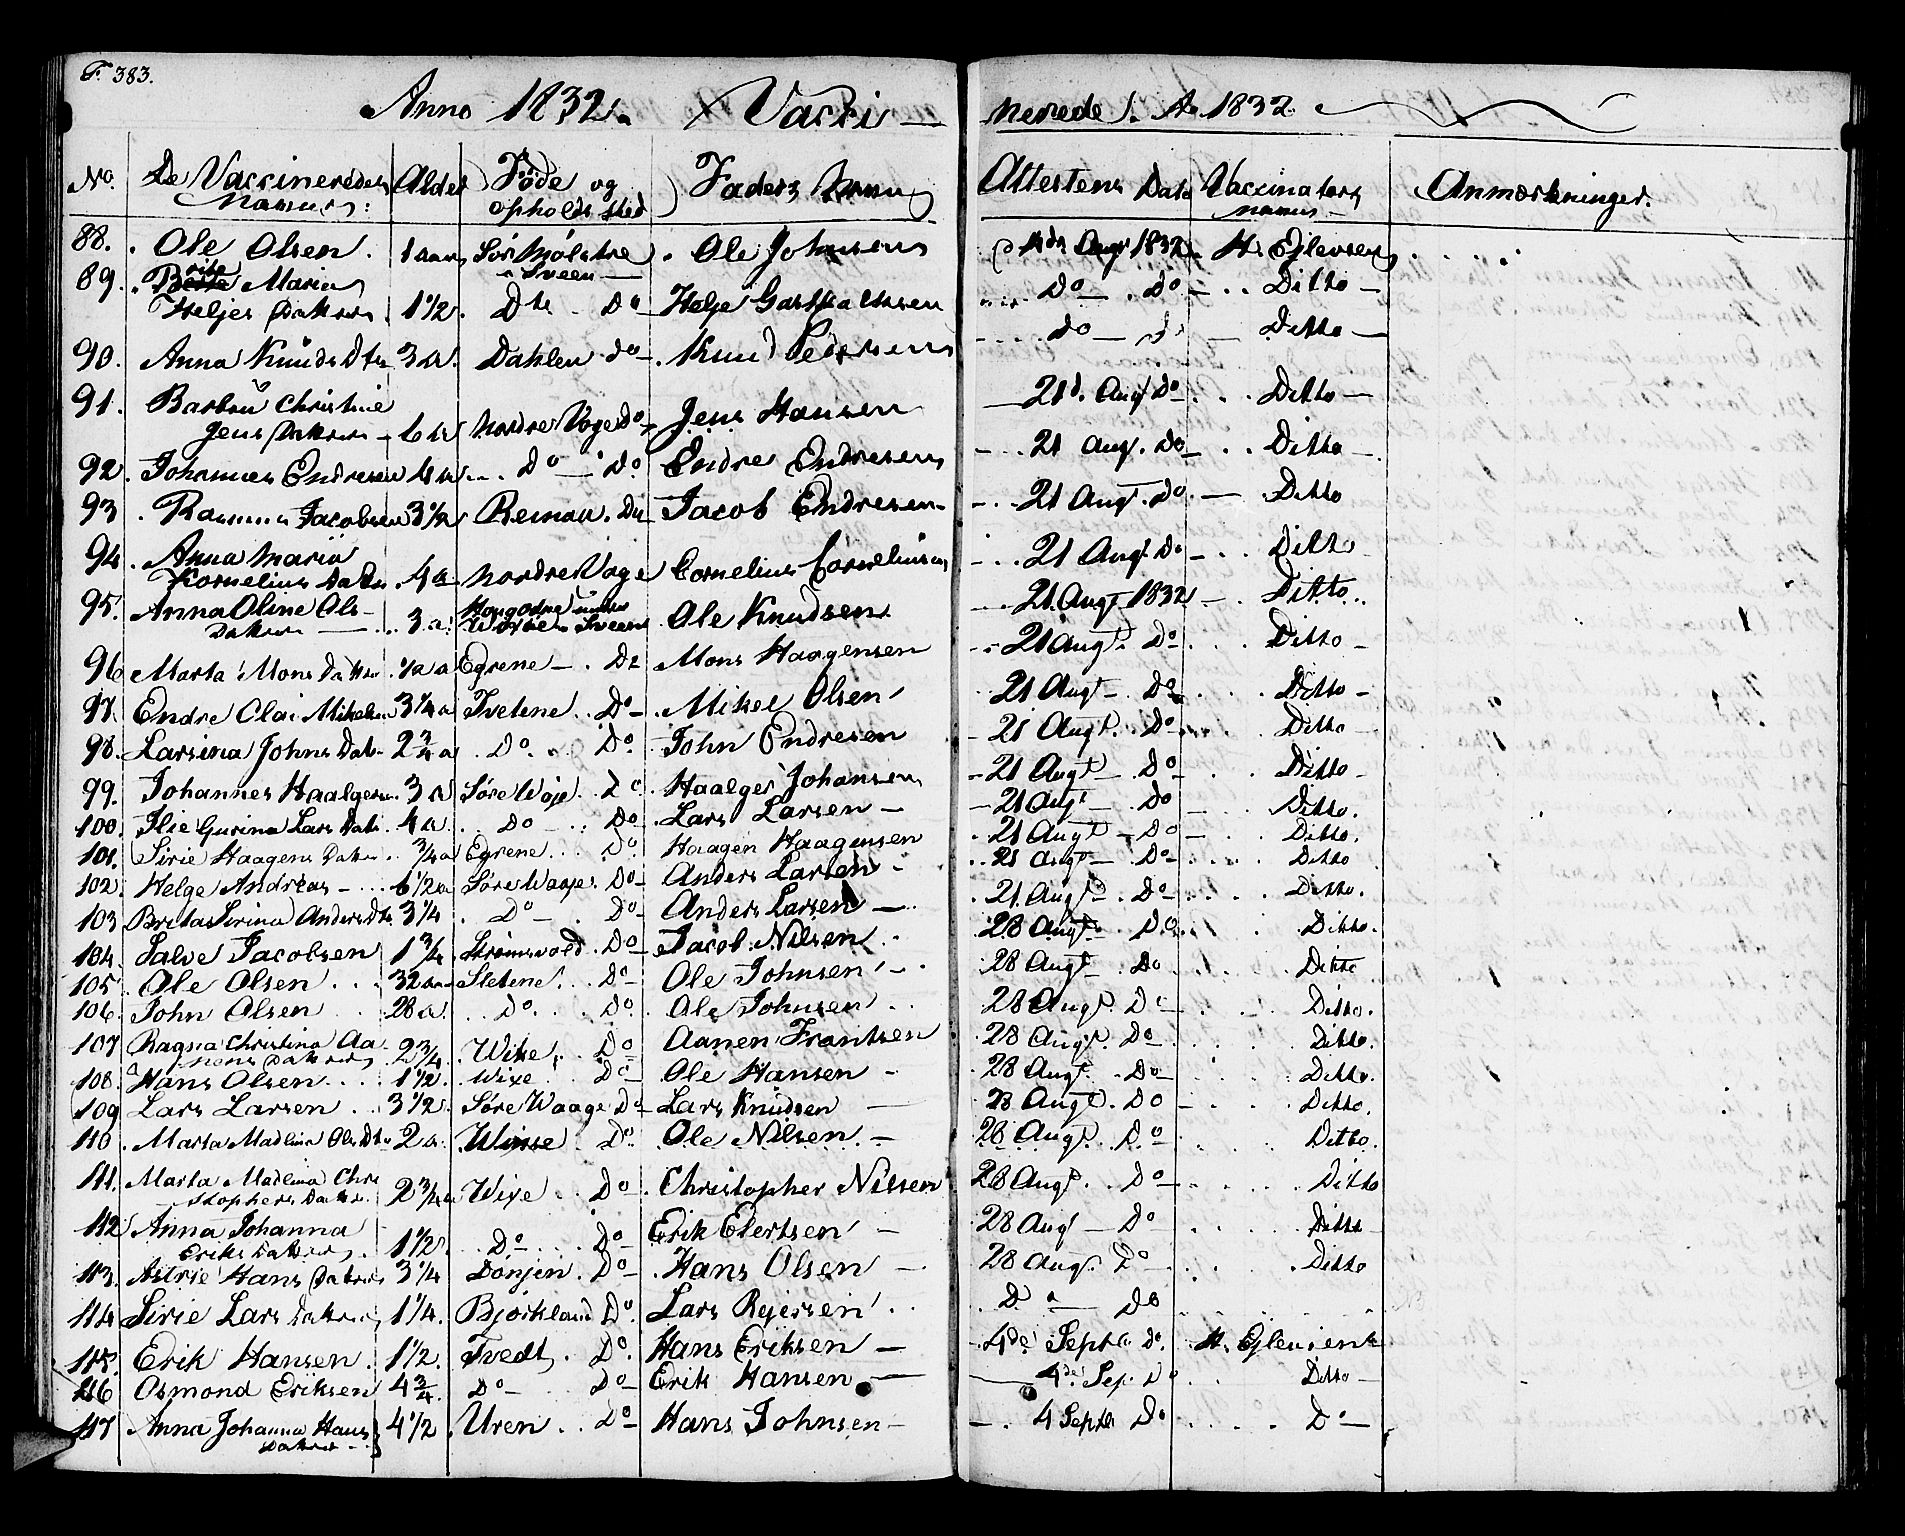 F. 383.
Anno 1832. Vacci — nerede i Ao 1832
No. De Vaccineredes Alder Føde og Faders Navn Attestens Dato Vaccinators Anmærkninger.
Navne: opholds sted navne
88. Ole Olsen. 1 aar Sør Mølstre Ole Johnsens Augt 1832. H. Ejlevsen
Sveen
89. Maria
Heljes Datter 1 1/2. Dto Do Helje Do — Do — Ditto —
90. Anna Knuds Dtr 3 a. Dahlen do — Knud Pedersens do — do — Ditto —
91. Barbru Christine
Jens Datter — 6 a Nordre Voge Do Jens Hansen 21d. Augt Do Ditto —
92. Johannes Endresen 4 a Do — Do Endre Endresens 21 Augt. Do — Ditto —
93. Rasmus Jacobsen 3 1/2 a Remau. Do Jacob Endresen — 21 Augt. Do. — Ditto
94. Anna Maria
Kornelius Datter 4 a Nordre Voge Cornelius Cornelius 21 Augt Do — Ditto
95. Anna Oline Ols —
Datter — 3 a. Sveen Ole Knudsen 21. Augt 1832 — Ditto
96 Marta Mons Datter 1/2 a Egrene — Do Mons Haagensen 21 Augt. Do — Ditto —
97. Endre Clai Mikelsen 3 1/4 a Tvetene. Do — Mikel Olsen 21 Augt — Do — Ditto —
98. Larsina Johns Dat. 2 3/4 a Do. Do. John Endresen 21 Augt. Do — Ditto —
99. Johannes Haalgers. 3 a Søre Woje. Do. Haalger Johansen 21 Augt — Do — Ditto —
100. Ilie Gurina Lars Datt. 4 a. Do — Do Lars Larsen — 21 Augt — Do Ditto.
101. Sirie Haagens Datter 3/4 a Egrene. Do. Haagen Haagensen 21 Augt — Do — Ditto.
102. Helge Andreas — 6 1/2 a Søre Waaje. Do — Anders Larsen — 21 Augt — Do — Ditto
103 Brita Serina Anders Dtr 3 1/4. Do — Do — Anders Larsen — 21. Augt. Do — Ditto.
104. Salve Jacobsen 1 3/4. Strømsvold. Do — Jacob Nilsen 28 Augt Do. Ditto.
105. Ole Olsen 32 a — Sletene. Do — Ole Johnsen — 28 Augt Do Ditto
106. John Olsen 28 a. Do. Do. Ole Johnsen 28 Augt. Do Ditto.
107 Ragna Christina Aa
nens Datter 2 3/4. Wike. Do Aanen Frantsen 28 Augt. Do — Ditto.
108. Hans Olsen 1 1/2. Wixe Do — Ole Hansen — 28 Augt. Do — Ditto.
109 Lars Larsen 3 1/2. Søre Waage Do — Lars Knudsen — 28 Augt. Do — Ditto.
110. Marta Madlina Ols Dtr 2 a. Do. Ole Nilsen. — 28 Augt. Do — Ditto.
111. Marta Madlina Chri
stophers Datter. 2 3/4 Wixe Do. Christopher Nilsen 28 Augt. Do — Ditto
112 Anna Johanna
Eriks Datter. 1 1/2. Do — Do — Erik Elertsen — 28 Augt — Do Ditto
113. Astrie Hans Datter 3 1/4 Dónjen. Do — Hans Olsen — 28 Augt. Do. Ditto
114 Sirie Lars Datter 1 1/4. Bjørkland Do. Lars Rejersen Do — Do
115. Erik Hansen. 1 1/2. Tvedt. Do. Hans Eriksen — 4de Septr. do. H. Ejlevsen
116 Osmond Eriksen 4 3/4. Do — Do — Erik Hansen — 4de Sep. Do Ditto —
117 Anna Johanna Hans 4 1/2 Uren Do — Hans Johnsen — 4 Septr Do Do —
Datter —